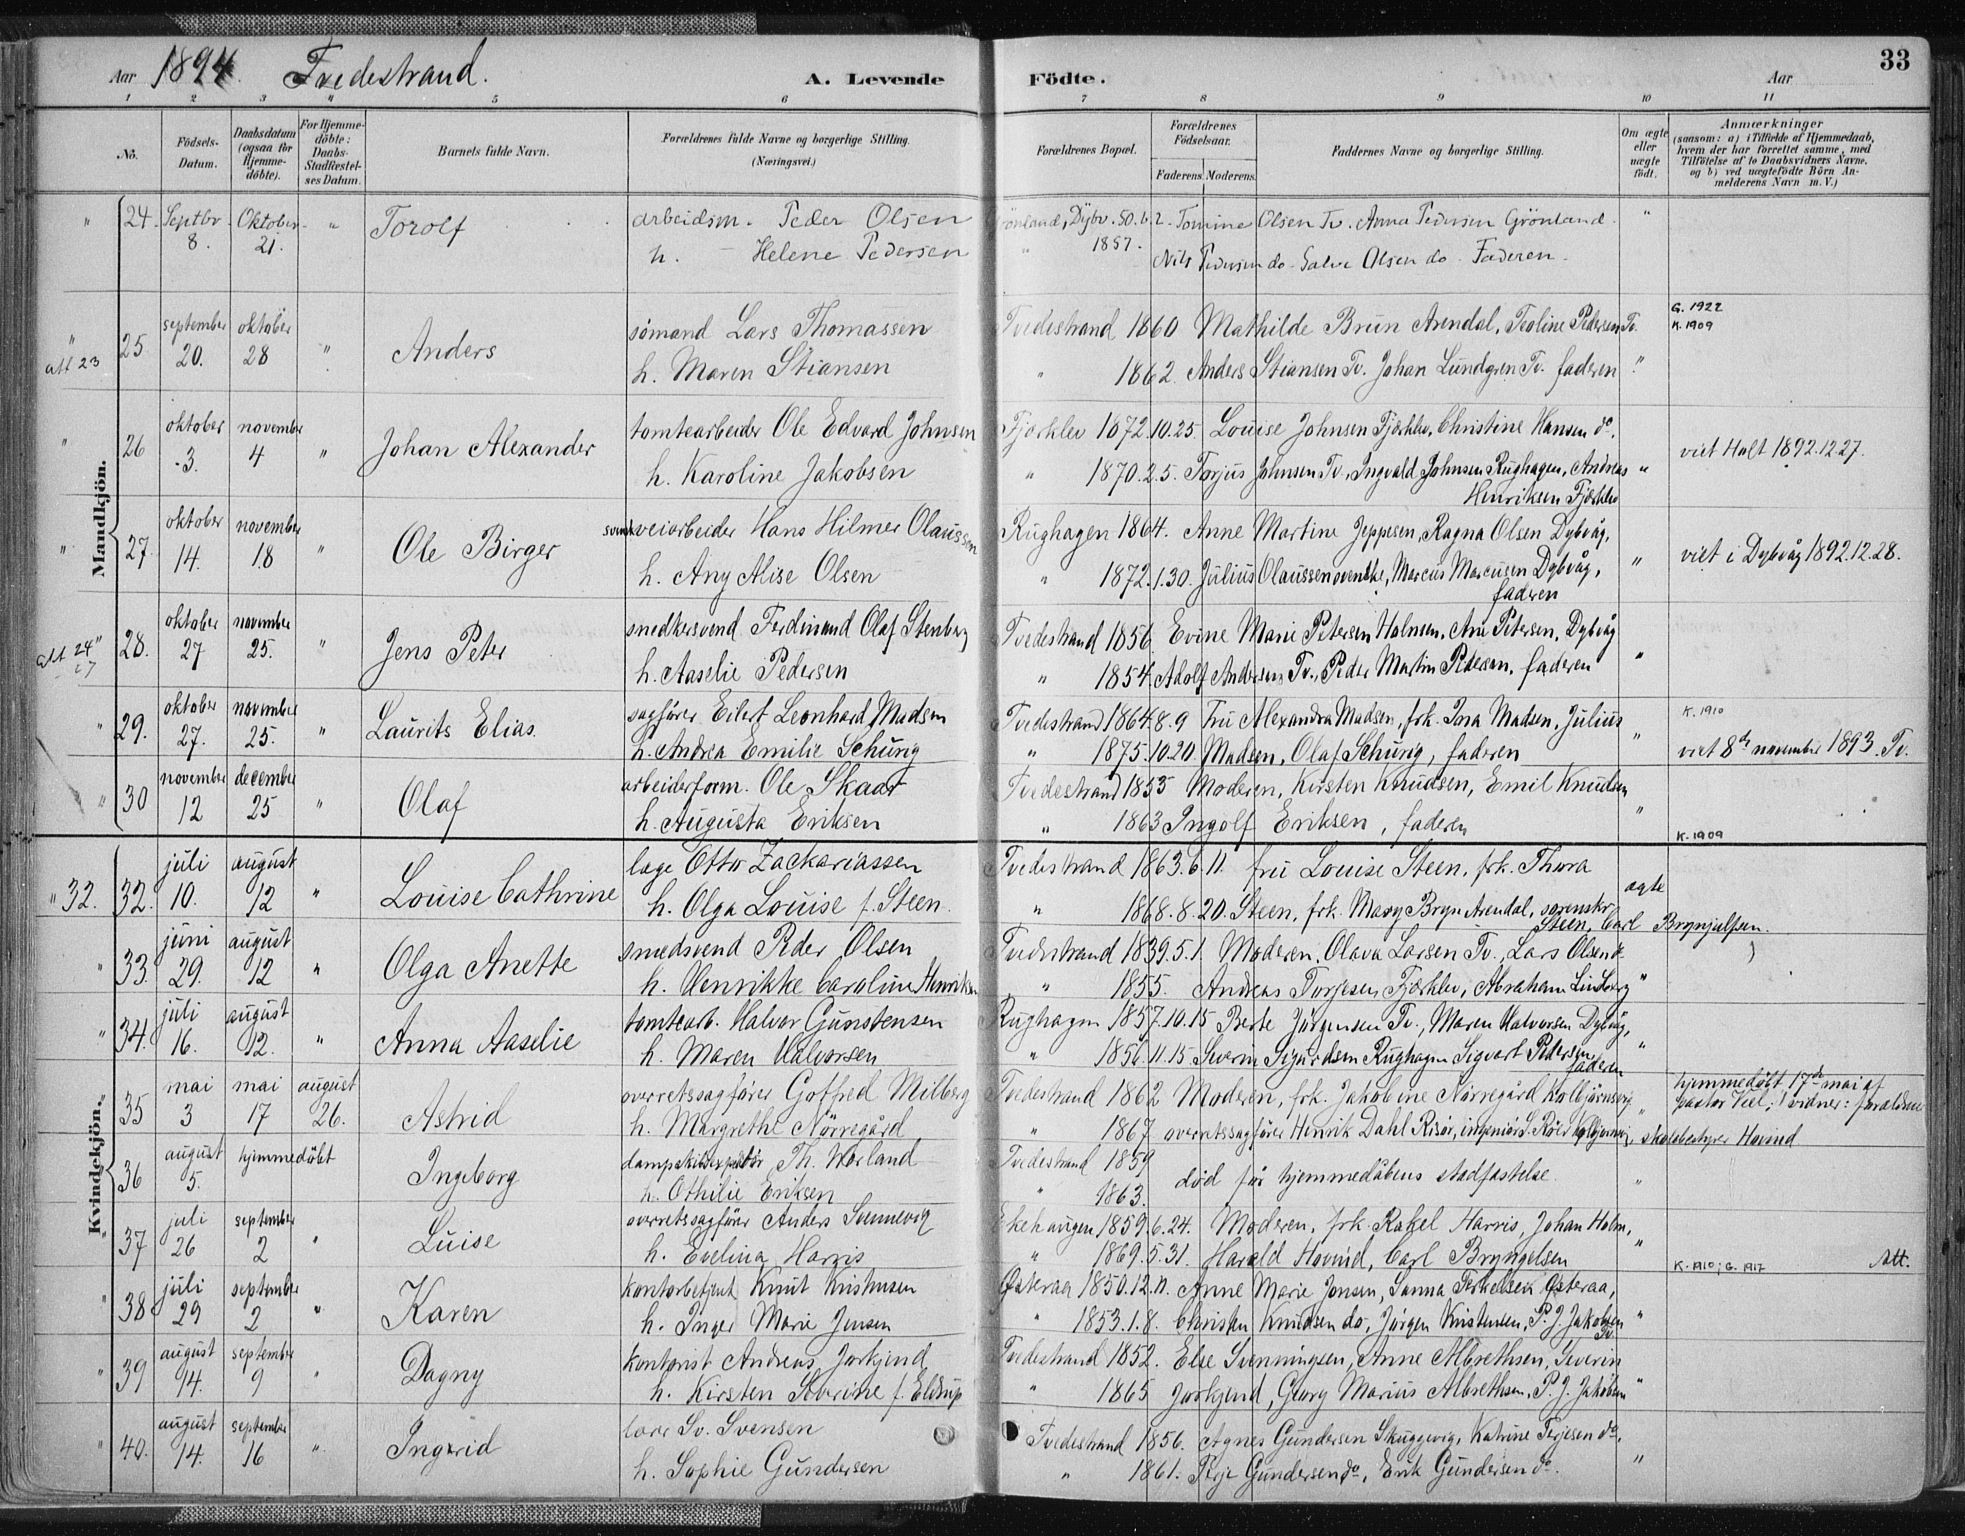 Aar 1894. Tvedestrand. A. Levende Födte. Aar 33
1 2 3 4 5 6 7 8 9 10 11
No. Födsels-Datum. Daabsdatum (ogsaa for Hjemme-döbte). For Hjemme-döbte: Daabs-Stadfæstel-ses Datum. Barnets fulde Navn. Forældrenes fulde Navne og borgerlige Stilling. (Næringsvei.) Forældrenes Bopæl. Forældrenes Födselsaar. Faderens. Moderens. Faddernes Navne og borgerlige Stilling. Om ægte eller uægte födt. Anmærkninger (saasom: a) i Tilfælde af Hjemmedaab, hvem der har forrettet samme, med Tilföielse af to Daabsvidners Navne, og b) ved uægtefödte Börn An-melderens Navn m. V.)
Mandkjön.
" 24. Septbr. Oktober " Torolf arbeidsm. Peder Olsen Grönland, Dybv. 50.6.2. Tomine Olsen Tv. Anna Pedersen Grönland. "
8. 21. h. Helene Pedersen " 1857. Nils Pedersen do. Salve Olsen do. Faderen.
" 25 september oktober Anders sömand Lars Thomassen Tvedestrand 1860 Mathilde Brun Arendal, Teoline Pedersen Tv. G. 1922 K. 1909
att 23 20. 28 " h. Maren Stiansen " 1862. Anders Stiansen Tv. Johan Lundgren Tv. faderen "
" 26 oktober november Johan Alexander tomtearbeider Ole Edvard Johnsen Fjærklev 1872.10.25 Louise Johnsen Fjærklev, Christine Hansen do. viet Holt 1892.12.27.
3. 4 " h. Karoline Jakobsen " 1870.2.5. Torjus Johnsen Tv., Ingvald Johnsen Rughagen, Andreas "
Henriksen Fjærklev
" 27. oktober november Ole Birger veiarbeider Hans Hilmer Olaussen Rughagen 1864. Anne Martine Jeppesen, Ragna Olsen Dybvåg,
14. 18 " h. Any Alise Olsen " 1872.1.30. Julius Olaussen svenske, Marcus Marcussen Dybvåg, " viet i Dybvåg 1892.12.28.
faderen
" 28. oktober november Jens Peter snedkersvend Ferdinand Olaf Stenberg Tvedestrand 1856. Evine Marie Petersen Holmsen, Ane Petersen, Dybvåg
att 24 27 25. " h. Aaselie Pedersen " 1854. Adolf Andersen Tv., Peder Martin Pedersen, faderen "
" 29. oktober november Laurits Elias. sagfører Eilert Leonhard Madsen Tvedestrand 1864.8.9 Fru Alexandra Madsen, frk. Ina Madsen, Julius K. 1910
27. 25. " h. Andrea Emilie Schurig " 1875.10.20. Madsen, Olaf Schurig, faderen " viet 8de november 1893. Tv.
" 30 november december Olaf arbeiderform. Ole Skaar Tvedestrand 1855 Moderen, Kirsten Knudsen, Emil Knudsen
12 25 " h. Augusta Eriksen " 1863 Ingolf Eriksen, faderen " K. 1909
Kvindekjön.
" 32. 32. juli august Louise Cathrine læge Otto Zackariassen Tvedestrand 1863.6.11. fru Louise Steen, frk. Thora
10. 12 " h. Olga Louise f. Steen. " 1868.8.20. Steen, frk. Mary Bryn Arendal, sorenskr. ægte
Steen, Carl Brynjulfsen.
" 33. juni august Olga Anette smedsvend Peder Olsen Tvedestrand 1839.5.1. Moderen, Olava Larsen Tv., Lars Olsen
29. 12 " h. Henrikke Caroline Henriksen " 1855. Andreas Torjesen Fjærklev, Abraham Lindberg "
" 34. juli august Anna Aaselie tomtearb. Halvor Gunstensen Rughagen 1857.10.15 Berte Jürgensen Tv., Maren Halvorsen Dybvåg,
16. 12. " h. Maren Halvorsen " 1856.11.15. Severin Sigurdsen Rughagen Sigvart Pedersen, "
faderen
35 mai mai august Astrid overretssagfører Gotfred Milberg Tvedestrand 1862 Moderen, frk. Jakobine Nørregård Kolbjørnsvig hjemmedøbt 17de mai af
3 17 26. h. Margrethe Nørregård " 1867 overretssagfører Henrik Dahl Risør, ingeniør S. Röer Kolbjørnsvig, skolebestyrer Hovind pastor Viel; vidner: forældrene
36 august hjemmedøbt Ingeborg dampskibsexpeditør Th. Worland Tvedestrand 1859 død før hjemmedåbens stadfæstelse.
5. h. Othilie Eriksen " 1863. "
" 37 juli september Luise overretssagfører Anders Sunnevig Ekehaugen 1859.6.24. Moderen, frk. Rakel Harris, Johan Holm,
26 2 " h. Evelina Harris " 1869.5.31. Harald Hovind, Carl Bryngelsen " K. 1910; G. 1917 Att.
" 38 juli september Karen kontorbetjent Knut Kristensen Østeraa 1850.12.11. Anne Marie Jensen, Sanna Terkelsen Østeraa,
29 2 " h. Inger Marie Jensen " 1853.1.8. Christen Knudsen do, Jörgen Kristensen, P. J. Jakobsen "
Tv.
" 39 august september Dagny kontorist Andreas Jorkjend Tvedestrand 1852. Else Svenningsen, Anne Albrethsen, Severin
14. 9 " h. Kirsten Severine f. Eldrup " 1865 Jorkjend, Georg Marius Albrethsen, P. J. Jakobsen "
" 40. august september Ingerid lærer Sv. Svensen Tvedestrand 1856. Agnes Gundersen Skuggevig, Katrine Terjesen do,
14. 16 " h. Sophie Gundersen " 1861. Terje Gundersen do, Erik Gundersen do. "